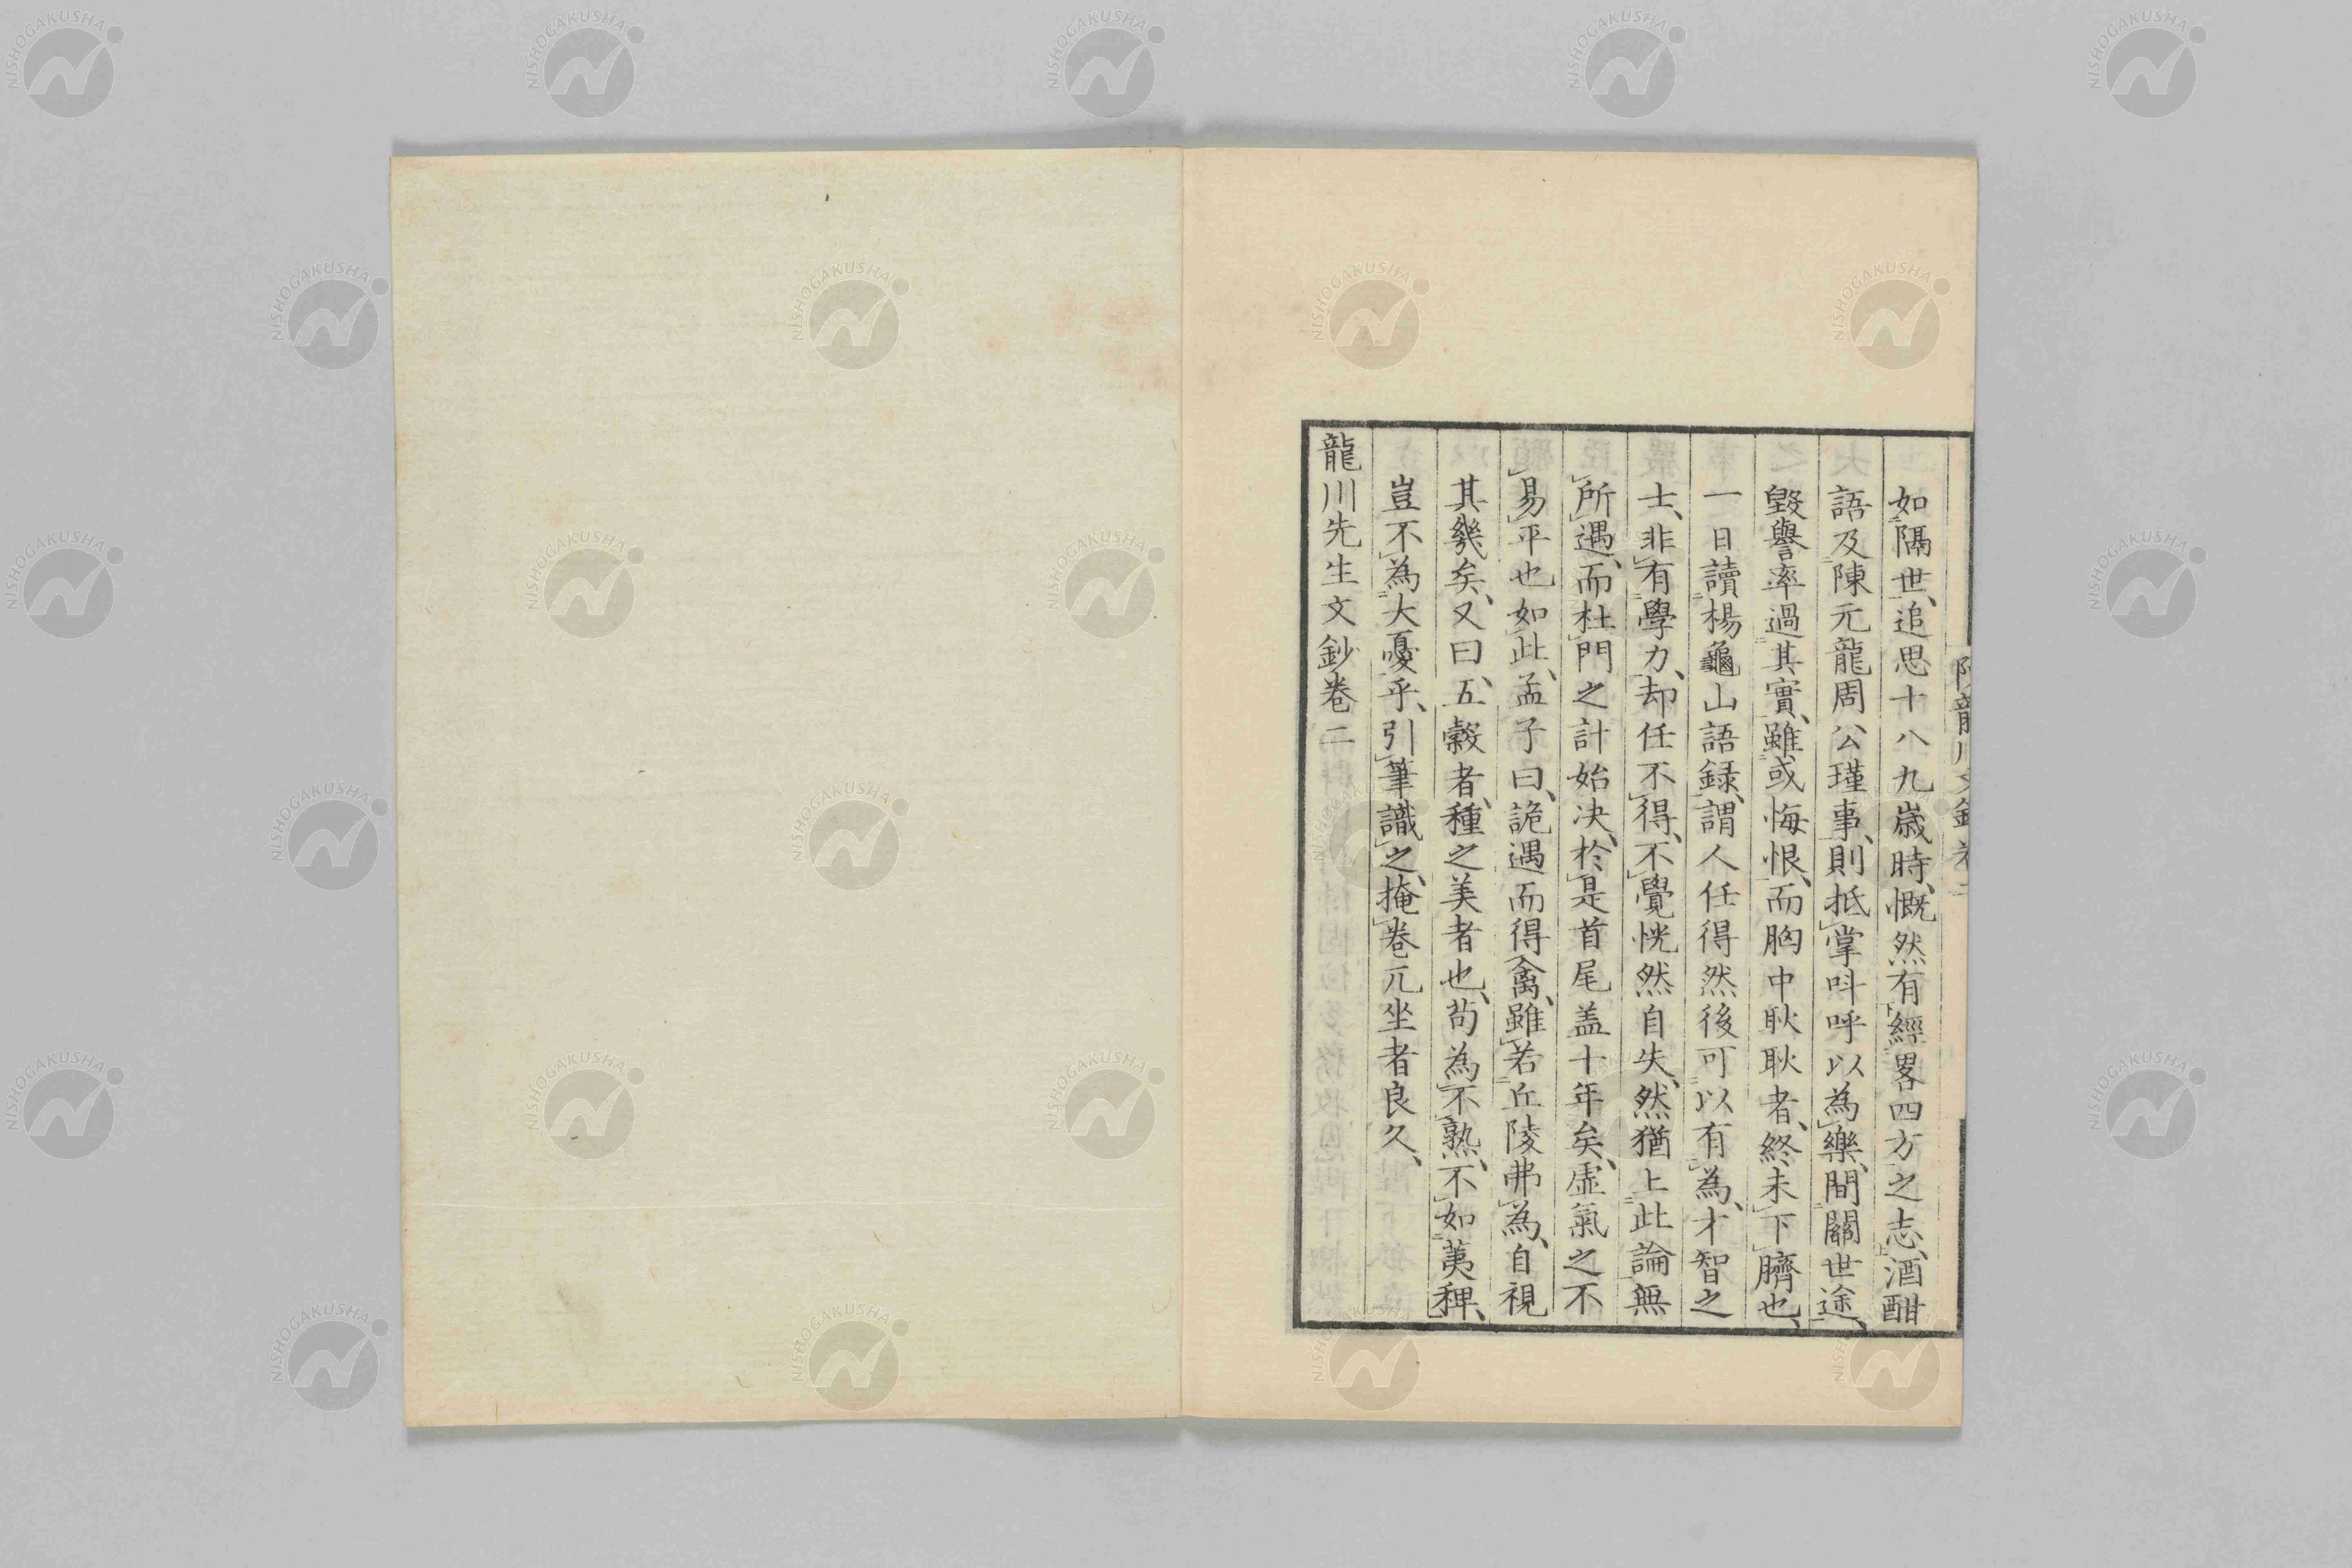 如隔世、追思十八九歳時、慨然有經畧四方之志、酒酣
語及陳元龍周公瑾事、則抵掌呌呼以為樂、間關世途、
毀譽率過其實、雖或悔恨、而胸中耿耿者、終未下臍也、
一日讀楊龜山語録、謂人任得然後可以有為、才智之
士、非有學力、却任不得、不覺恍然自失、然猶上此論無
所遇、而杜門之計始决、於是首尾盖十年矣、虛氣之不
易平也如此、孟子曰、詭遇而得禽、雖若丘陵弗為、自視
其幾矣、又曰、五糓者、種之美者也、苟為不熟、不如荑稗、
豈不為大憂乎、引筆識之、掩卷兀坐者良久、
龍川先生文鈔卷二
NISHOGAKUSHA